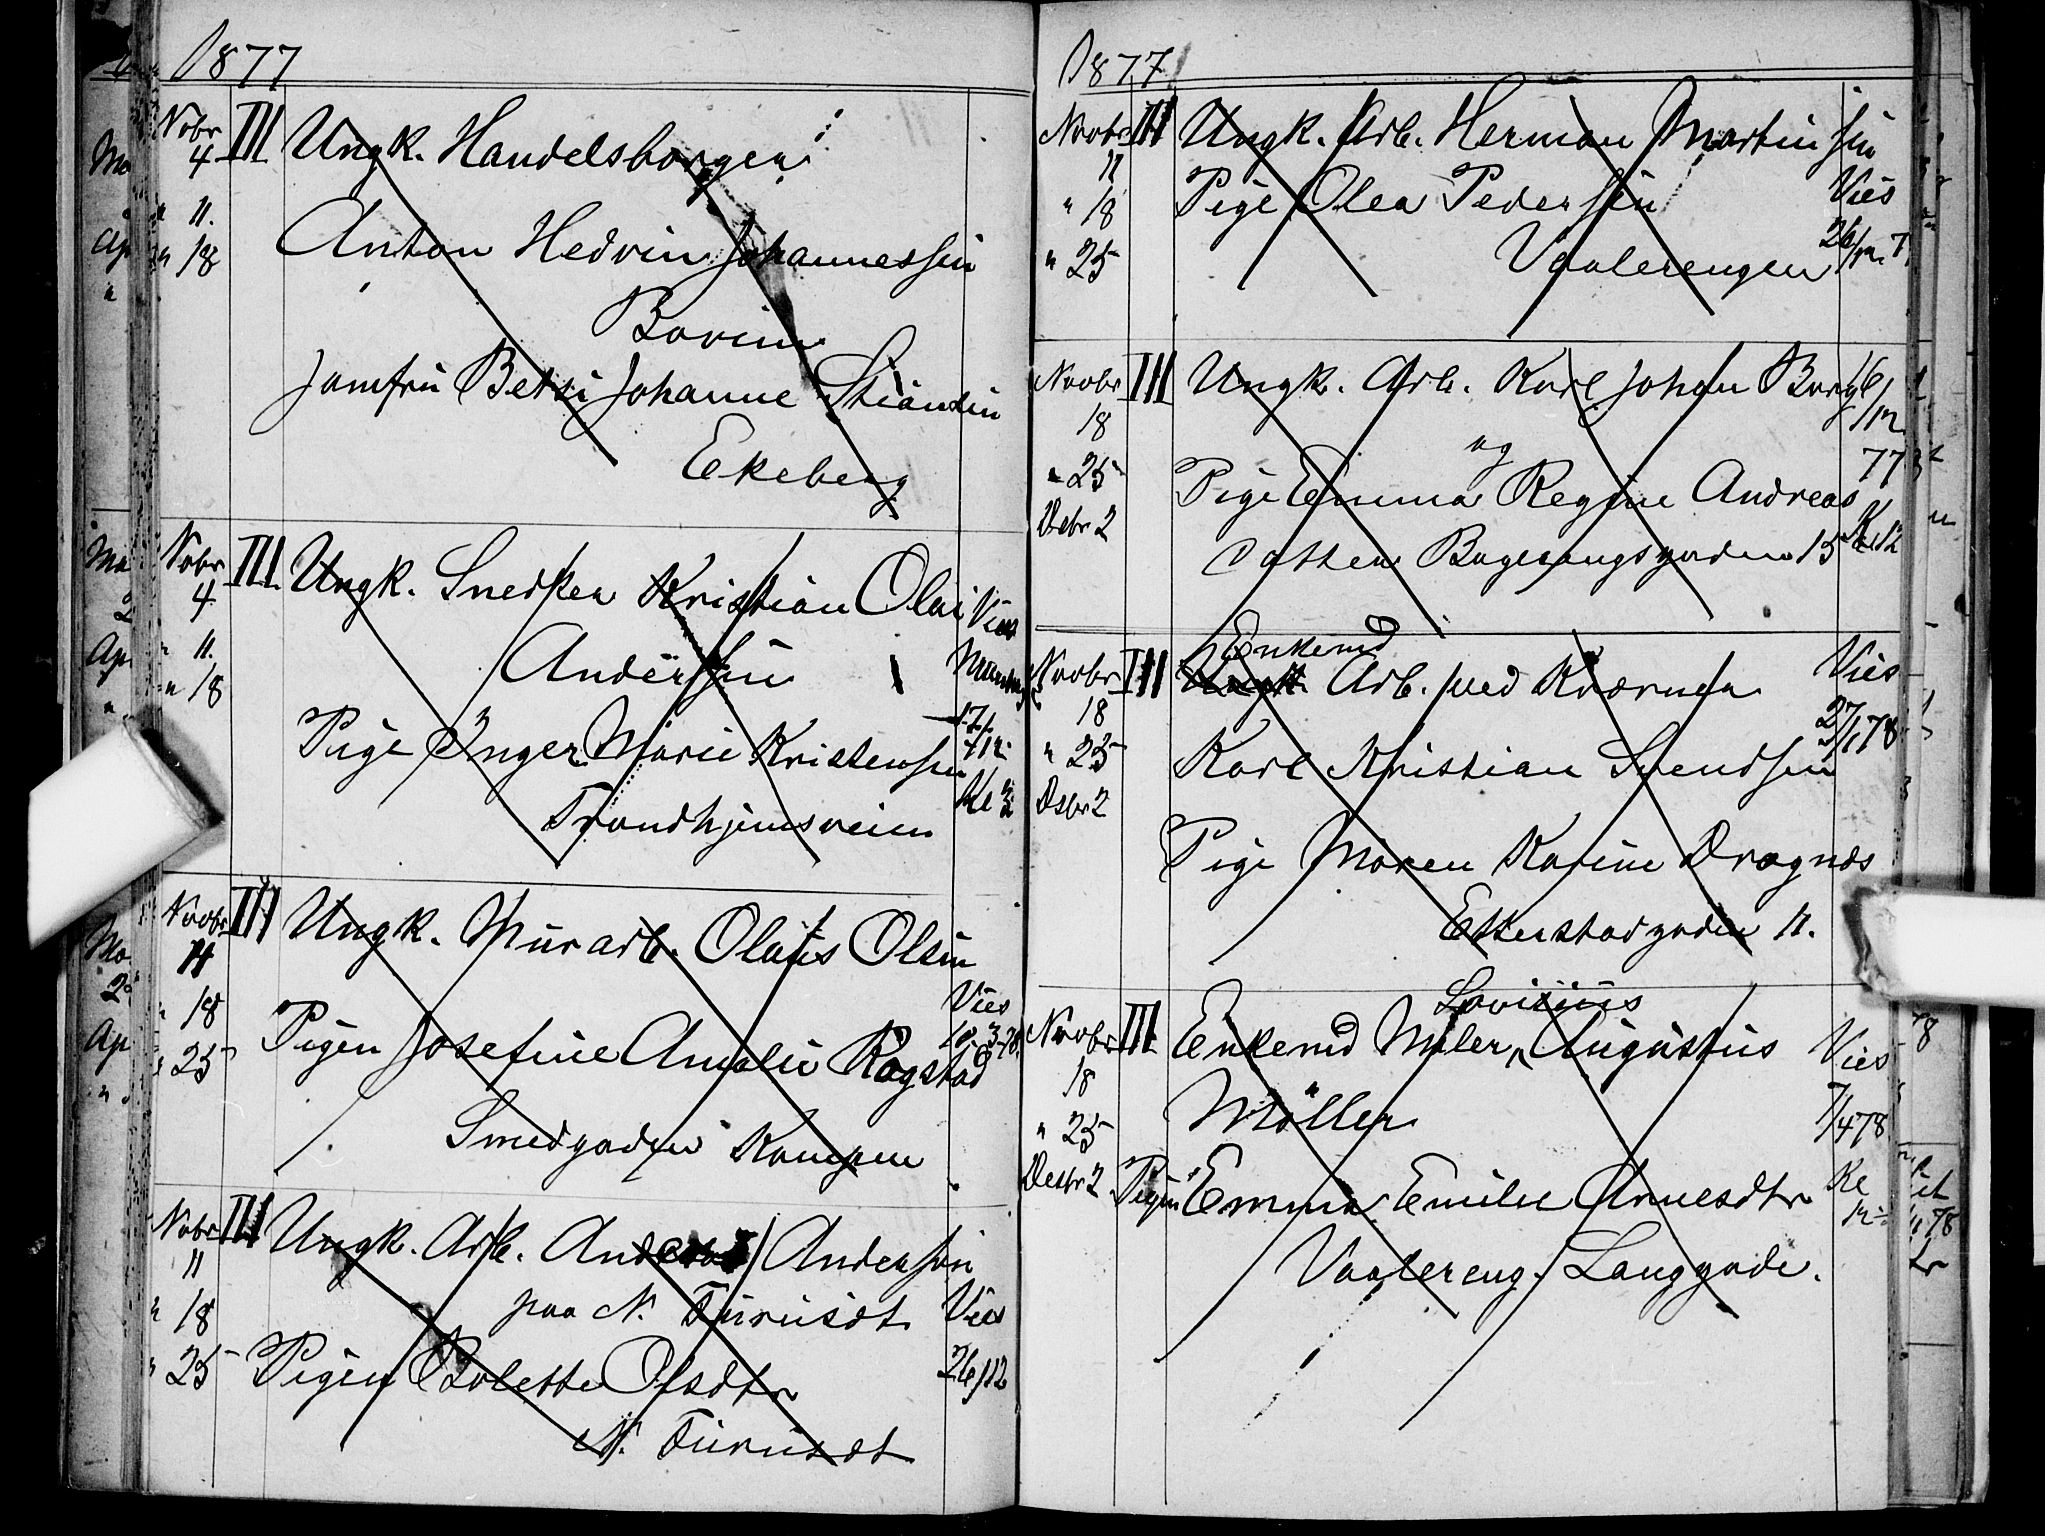 1877
Nobr III Ungk. Handelsborger
4
" 11. Anton Hedvin Johannessen
" 18
Bovim
Jomfru Betsi Johanne Stiansen
Ekeberg
Nobr III Ungk. Snedker Kristian Olai Vies
4
" 11. Andersen
" 18
Pige Inger Marie Kristensen 17/12
Trondhjemsveien
Novbr III Ungk. Murarb. Olaus Olsen
11
" 18 Vies
" 25 Pigen Josefine Amalie Rogstad 10/3 78
Smedgaden Kampen
Nobr III Ungk. Arb. Anders Andersen
11
" 18 paa N. Furuset Vies
" 25 Pigen Bolette Olsdtr 26/12
N. Furuset
1877
Novbr III Ungk. Arb. Herman Martinsen
11
" 18 Pige Olea Pedersen Vies
" 25 Vaalerengen 26/12 7
Novbr III Ungk. Arb. Karl Johan Borg 16/12
18 og 77
" 25 Pige Emma Regine Andreas
Debr 2 datter Bogerangsgaden 15
Enkemd
Novbr III Ungk. Arb. ved Kværner Vies
18 27/1 78
" 25 Karl Kristian Svendsen
Desbr 2
Pige Maren Karine Dragnæs
Etterstadgaden 11.
Lovinius
Novbr III Enkemd Maler, Augustus Vies
18
" 25 Möller 7/4 78
Desbr 2 Pigen Emma Emilie Arnesdtr
Vaalereng. Langgade.